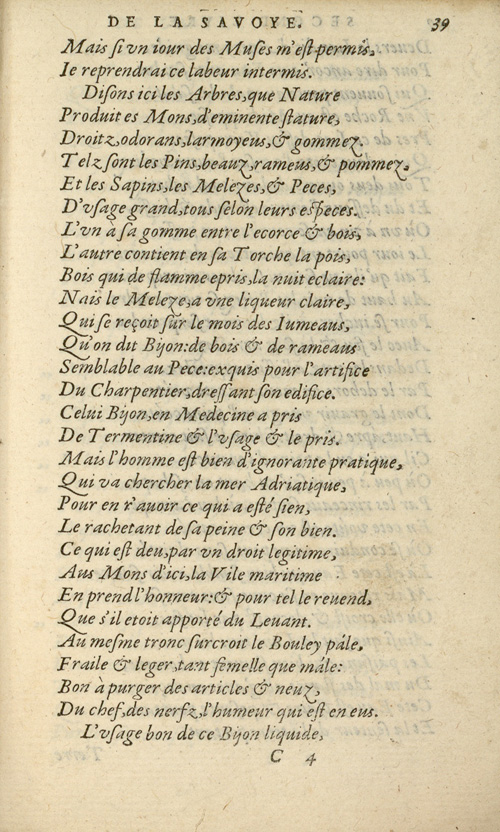 DE LA SAVOYE. 39
Mais si vn iour des Muses m'est permis,
Ie reprendrai ce labeur intermis.
Disons ici les Arbres, que Nature
Produit es Mons, d'eminente stature,
Droitz, odorans, larmoyeus, & gommez.
Telz sont les Pins, beauz, rameus, & pommez,
Et les Sapins, les Melezes, & Peces,
D'vsage grand, tous selon leurs especes.
L'vn a sa gomme entre l'ecorce & bois,
L'autre contient en sa Torche la pois,
Bois qui de flamme epris, la nuit eclaire:
Nais le Meleze, a vne liqueur claire,
Qui se reçoit sur le mois des Iumeaus,
Qu'on dit Bijon: de bois & de rameaus
Semblable au Pece: exquis pour l'artifice
Du Charpentier, dressant son edifice.
Celui Bijon, en Medecine a pris
De Termentine & l'vsage & le pris.
Mais l'homme est bien d'ignorante pratique,
Qui va chercher la mer Adriatique,
Pour en r'auoir ce qui a esté sien,
Le rachetant de sa peine & son bien.
Ce qui est deu, par vn droit legitime,
Aus Mons d'ici, la Vile maritime
En prend l'honneur: & pour tel le reuend,
Que s'il etoit apporté du Leuant.
Au mesme tronc surcroit le Bouley pále,
Fraile & leger, tant femelle que mále:
Bon à purger des articles & neuz,
Du chef, des nerfz, l'humeur qui est en eus.
L'vsage bon de ce Bijon liquide,
C 4